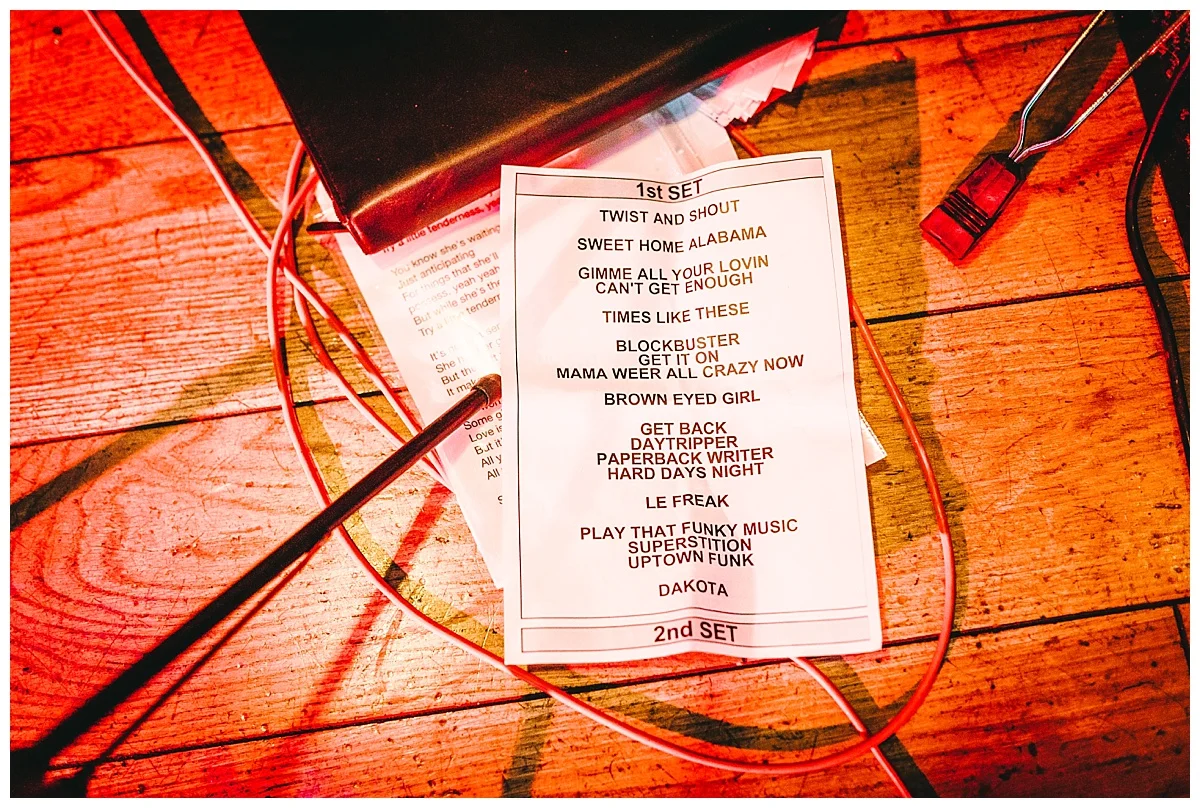 1st SET
TWIST AND SHOUT
SWEET HOME ALABAMA
GIMME ALL YOUR LOVIN
CAN'T GET ENOUGH
TIMES LIKE THESE
BLOCKBUSTER
GET IT ON
MAMA WEER ALL CRAZY NOW
BROWN EYED GIRL
GET BACK
DAYTRIPPER
PAPERBACK WRITER
HARD DAYS NIGHT
LE FREAK
PLAY THAT FUNKY MUSIC
SUPERSTITION
UPTOWN FUNK
DAKOTA
2nd SET
Try a little tenderness,
You know she's waiting
Just anticipating
For things that she'll
possess, yeah yeah
But while she's
Try a
It's
She
But
It
Some
Love is
But it'
All
All